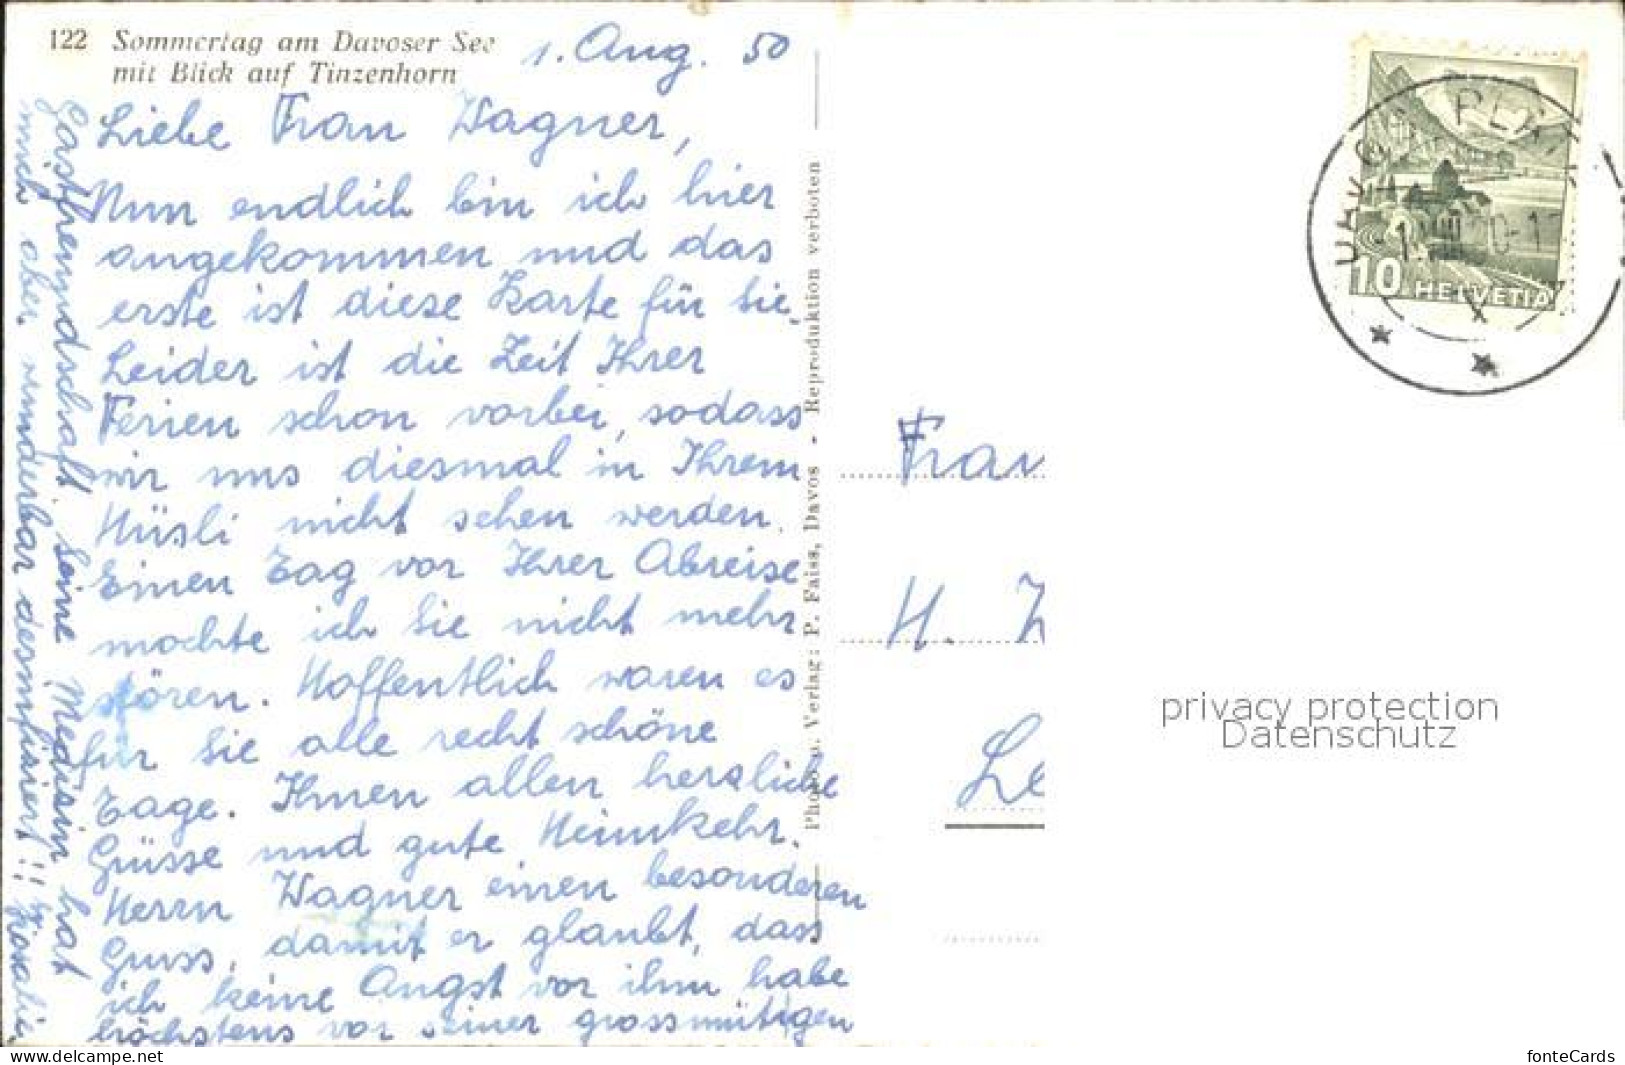 122 Sommertag am Davoser See
mit Blick auf Tinzenhorn
1. Aug. 50
Liebe Frau Wagner,
Nun endlich bin ich hier
angekommen und das
erste ist diese Karte für Sie.
Leider ist die Zeit Ihrer
Ferien schon vorbei, sodass
wir uns diesmal in Ihrem
Hüsli nicht sehen werden.
Einen Tag vor Ihrer Abreise
mochte ich Sie nicht mehr
stören. Hoffentlich waren es
für Sie alle recht schöne
Tage. Ihnen allen herzliche
Grüsse und gute Heimkehr.
Herrn Wagner einen besonderen
Gruss, damit er glaubt, dass
ich keine Angst vor ihm habe
höchstens vor seiner grossmütigen
Gastfreundschaft. Seine Medizin hat
mich aber wunderbar desinfisziert!!
Photo u. Verlag: P. Faiss, Davos - Reproduktion verboten
10 HELVETIA
Frau
H.
Le
privacy protection
Datenschutz
www.delcampe.net
fonteCards